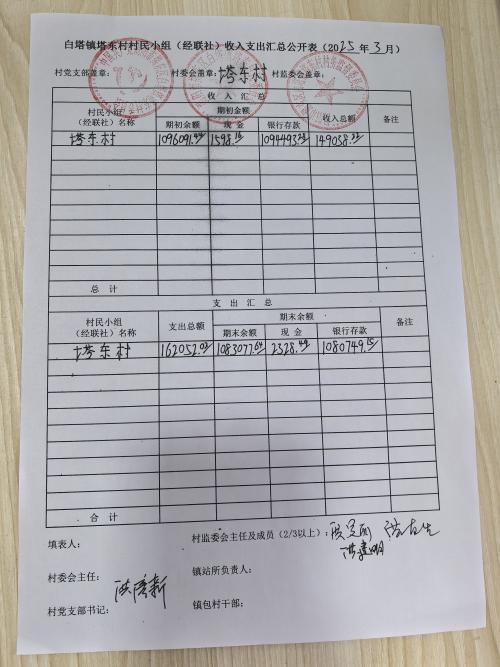 白塔镇塔东村村民小组（经联社）收入支出汇总公开表（2025年3月）
村党支部盖章： 村委会盖章：塔东村 村监委会盖章：
收 入 汇 总
村民小组（经联社）名称 期初余额 收入总额 备注
期初余额 现 金 银行存款
塔东村 1096091.44 1598.16 1094493.28 149038.22
总 计
支 出 汇 总
村民小组（经联社）名称 支出总额 期末余额 备注
期末余额 现 金 银行存款
塔东村 162052.02 1083077.64 2328.49 1080749.15
合 计
填表人： 村监委会主任及成员（2/3以上）：
村委会主任： 镇站所负责人：
村党支部书记： 镇包村干部：